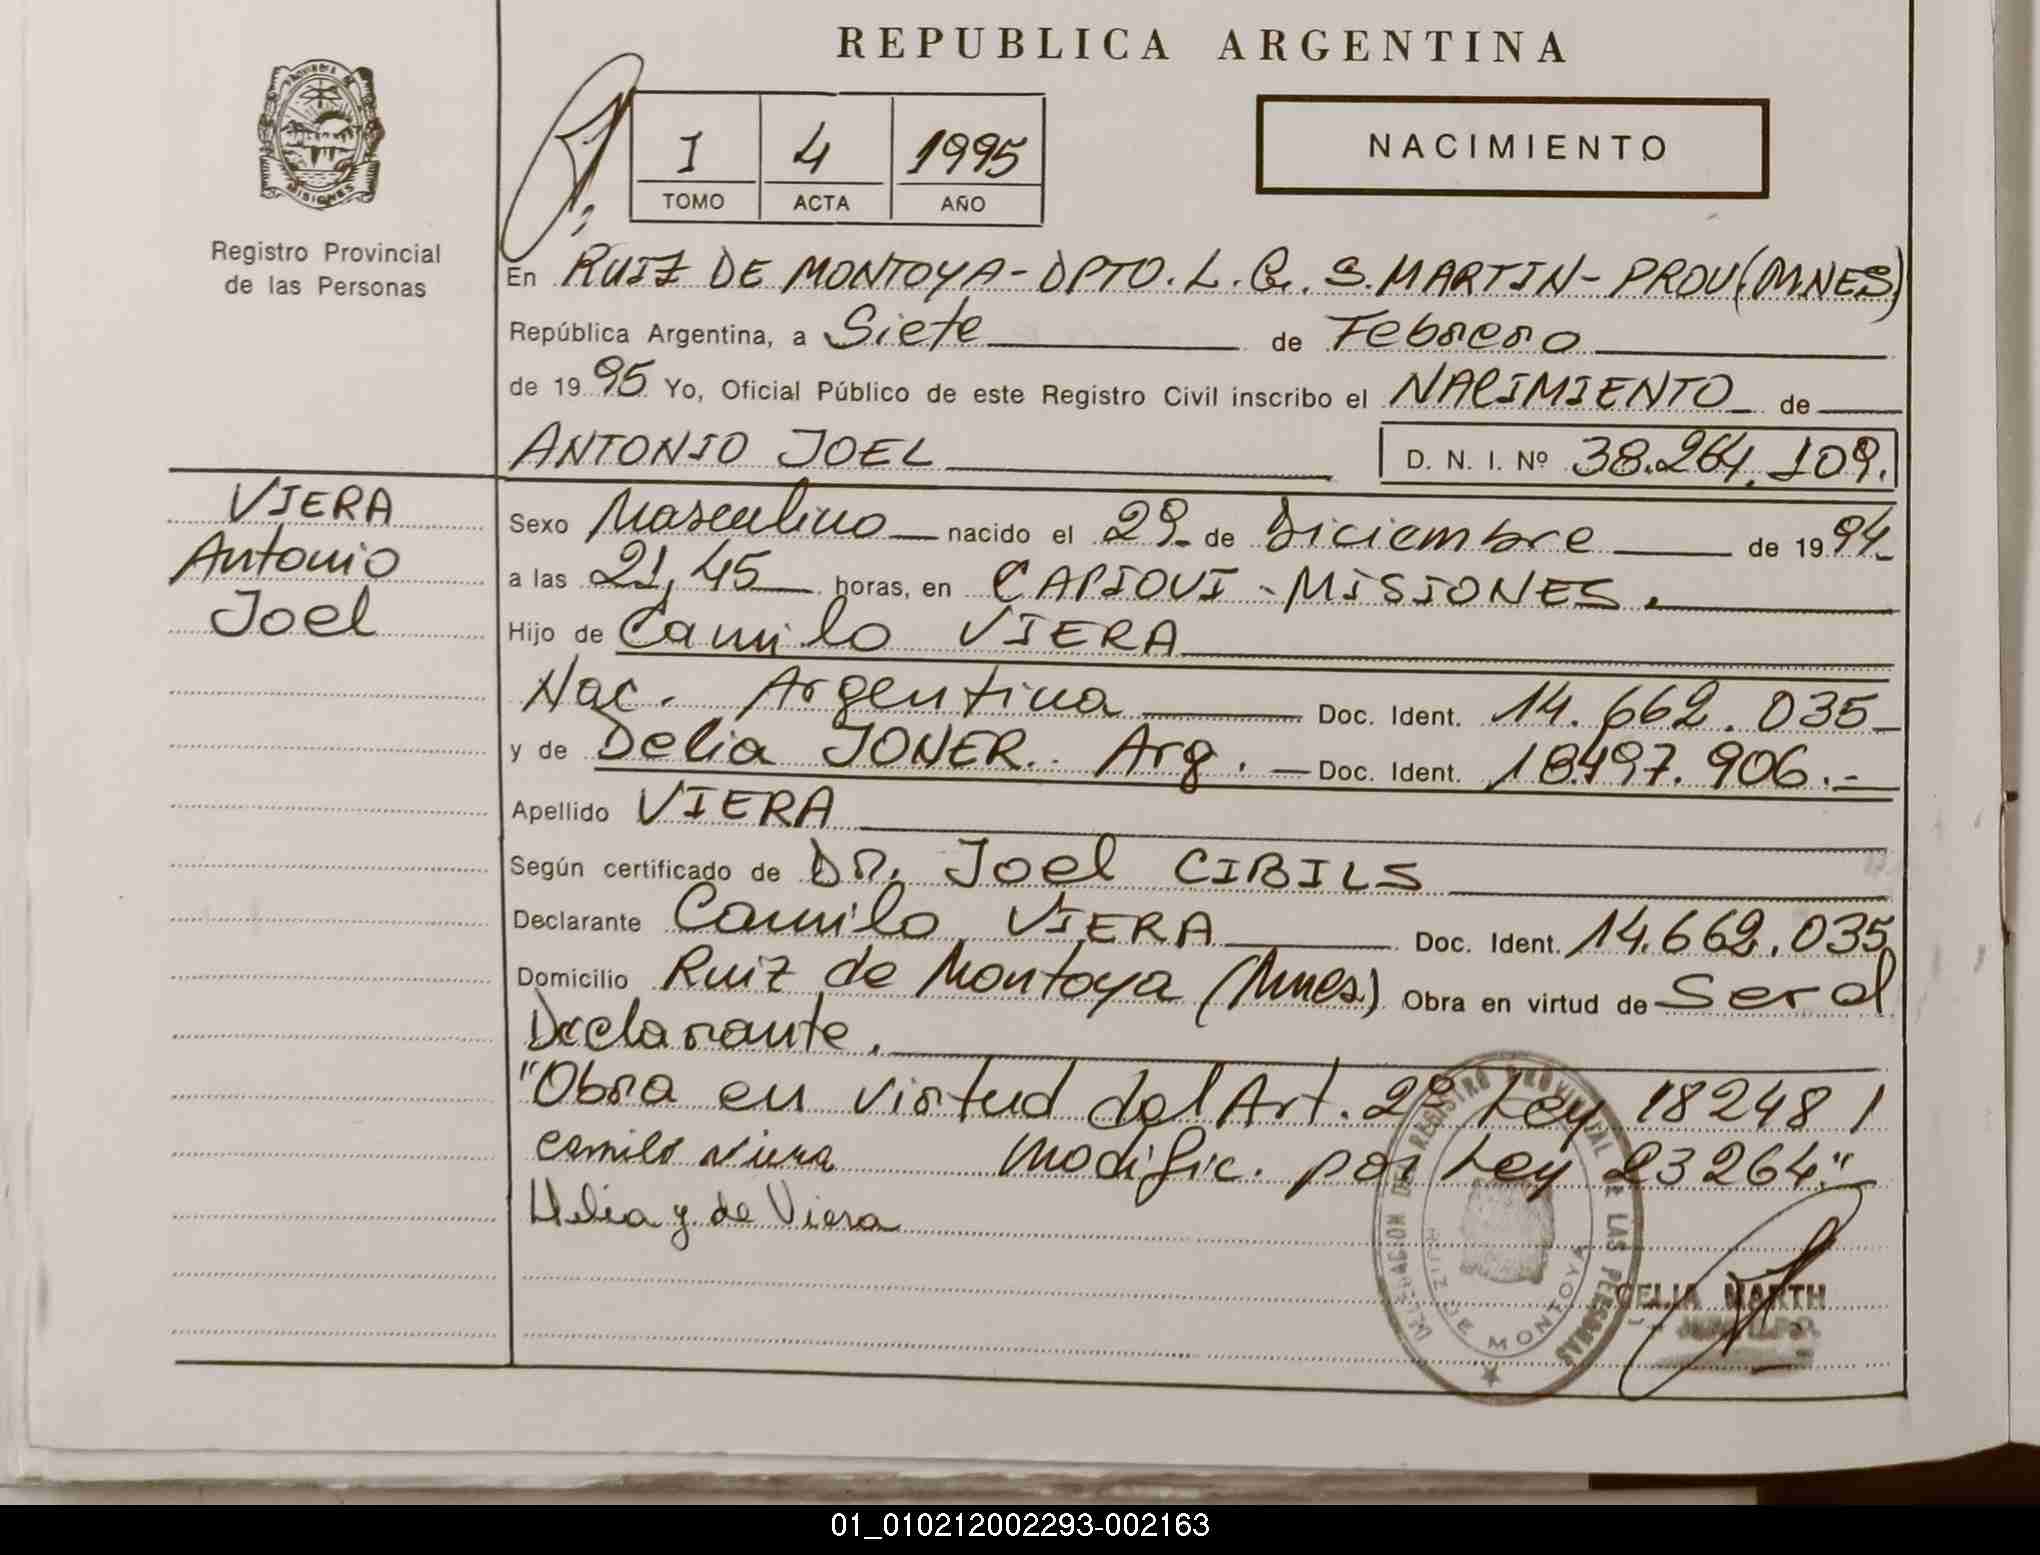 REPUBLICA ARGENTINA
PROVINCIA DE
MISIONES
Registro Provincial
de las Personas
I 4 1995
TOMO ACTA AÑO
NACIMIENTO
En RUIZ DE MONTOYA - DPTO. L. G. S. MARTIN - PROV (MNES)
República Argentina, a Siete de Febrero
de 1995 Yo, Oficial Público de este Registro Civil inscribo el NACIMIENTO de
ANTONIO JOEL D. N. I. Nº 38.264.109.
VIERA
Antonio
Joel
Sexo Masculino nacido el 29 de Diciembre de 1994
a las 21,45 horas, en CAPIOVI - MISIONES.
Hijo de Camilo VIERA
Nac. Argentina Doc. Ident. 14.662.035
y de Delia JONER. Arg. Doc. Ident. 18.497.906.-
Apellido VIERA
Según certificado de DR. Joel CIBILS
Declarante Camilo VIERA Doc. Ident. 14.662.035
Domicilio Ruiz de Montoya (Mnes) Obra en virtud de Ser el
Declarante.
"Obra en virtud del Art. 2º Ley 18248 /
Camilo Viera Modific. por Ley 23264."
y. de Viera
DELEGACION DEL REGISTRO PROVINCIAL DE LAS PERSONAS
RUIZ DE MONTOYA
CELIA MARTH
01_010212002293-002163